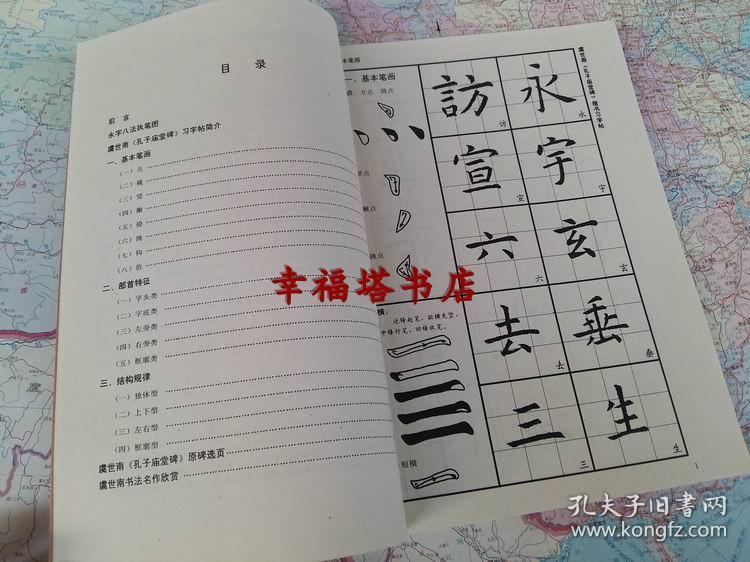 目 录
前 言
永字八法执笔图
虞世南《孔子庙堂碑》习字帖简介
一、基本笔画
（一）点
（二）横
（三）竖
（四）撇
（五）捺
（六）挑
（七）钩
（八）折
二、部首特征
（一）字头类
（二）字底类
（三）左旁类
（四）右旁类
（五）框廓类
三、结构规律
（一）独体型
（二）上下型
（三）左右型
（四）框廓型
虞世南《孔子庙堂碑》原碑选页
虞世南书法名作欣赏
本笔画
一、基本笔画
点 方点 圆点
竖点
撇点
挑点
横：
逆锋起笔、欲横先竖，
中锋行笔、回锋收笔。
短横
訪 永
访 永
宣 宇
宣 宇
六 玄
六 玄
去 垂
去 垂
三 生
三 生
虞世南《孔子庙堂碑》楷书习字帖
1
幸福塔书店
孔夫子旧书网
kongfz.com